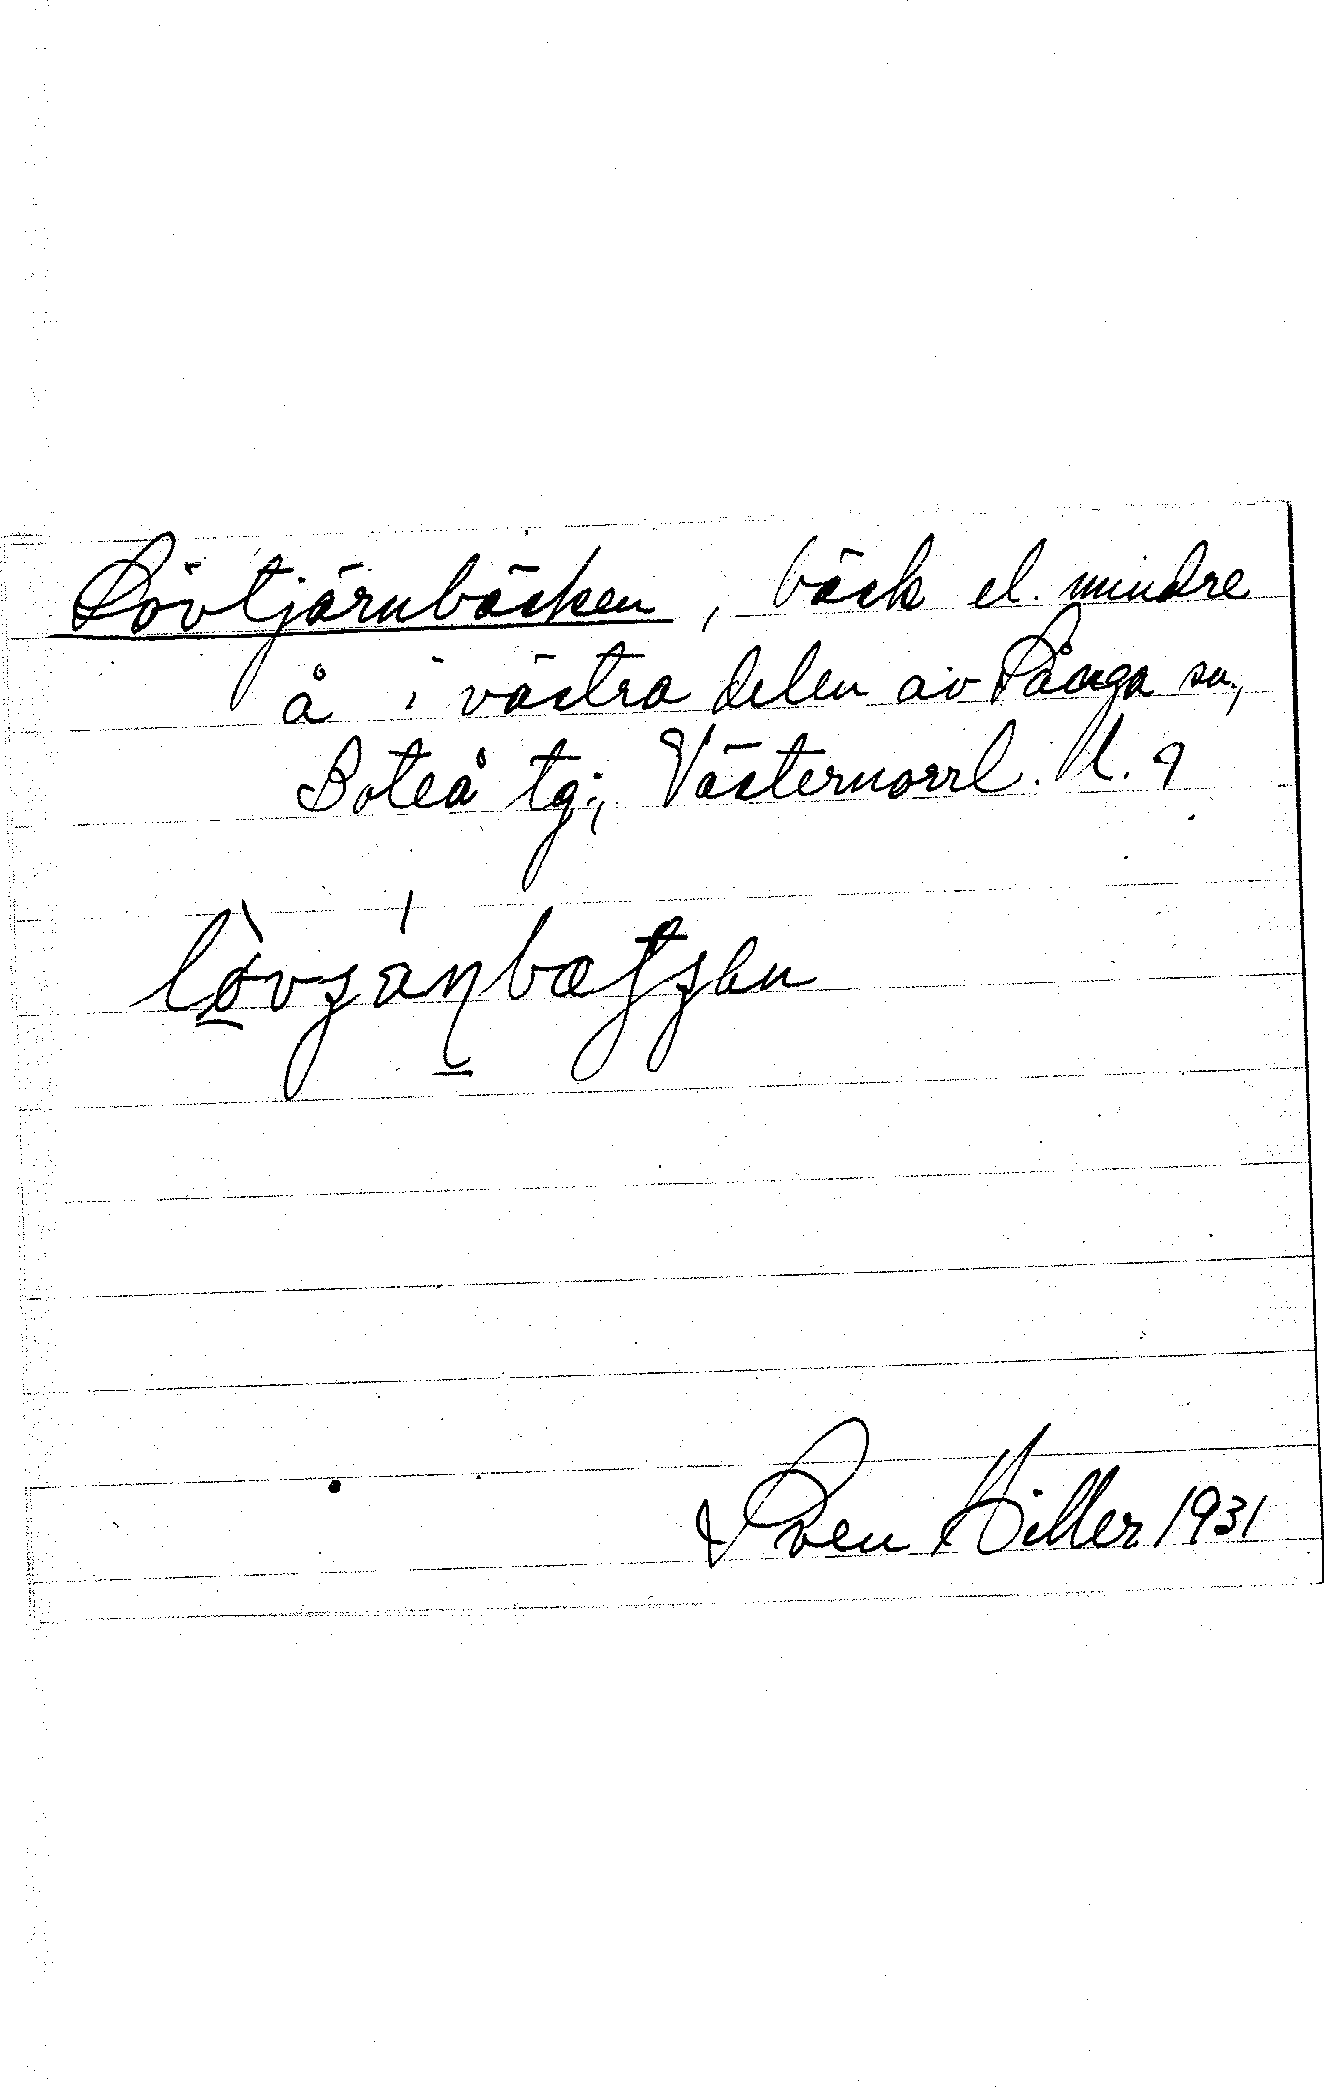 Lövtjärnbäcken, bäck el. mindre
å i västra delen av Sånga sn,
Boteå tg:, Västernorrl. l.
Sven Hiller 1931